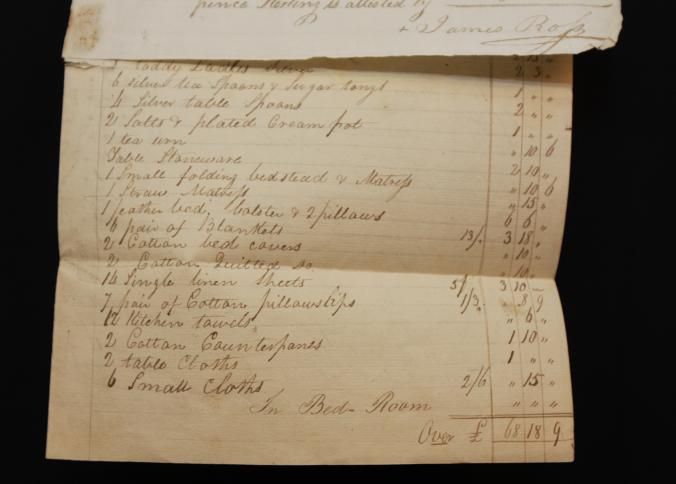 pence Sterling is attested by
+ James Ross
Toddy Ladles Silver " 15 "
6 silver tea Spoons & Sugar tongs 2 3 "
4 Silver table Spoons 1 " "
2 Salts & plated Cream pot 2 " "
1 tea urn 1 " "
Table Stoneware " 10 6
1 Small folding bedstead & Matress 2 10 "
1 Straw Matress " 10 6
1 feather bed, bolster & 2 pillows " 15 "
6 pair of Blankets 6 6 "
2 Cotton bed covers 13/. 3 18 "
2 Cotton Quilted do. " 10 "
14 Single linen Sheets 5/ 3 10 "
7 pair of Cotton pillowslips 1/3. " 8 9
12 Kitchen towels " 6 "
2 Cotton Counterpanes 1 10 "
2 table Cloths 1 " "
6 Small Cloths 2/6 " 15 "
In Bed-Room " " "
Over £ 68 18 9